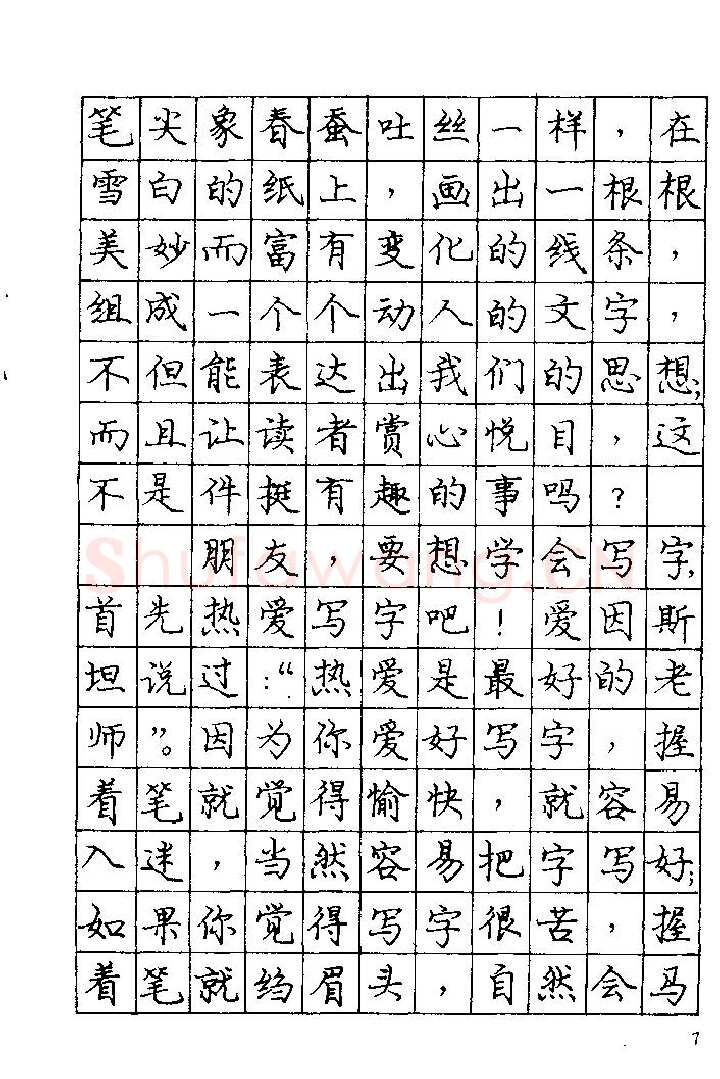 笔尖象春蚕吐丝一样，在
雪白的纸上，画出一根根
美妙而富有变化的线条，
组成一个个动人的文字，
不但能表达出我们的思想；
而且让读者赏心悦目，这
不是件挺有趣的事吗？
朋友，要想学会写字，
首先热爱写字吧！爱因斯
坦说过：“热爱是最好的老
师”。因为你爱好写字，握
着笔就觉得愉快，就容易
入迷，当然容易把字写好；
如果你觉得写字很苦，握
着笔就绉眉头，自然会马
7
Shufawang.CN